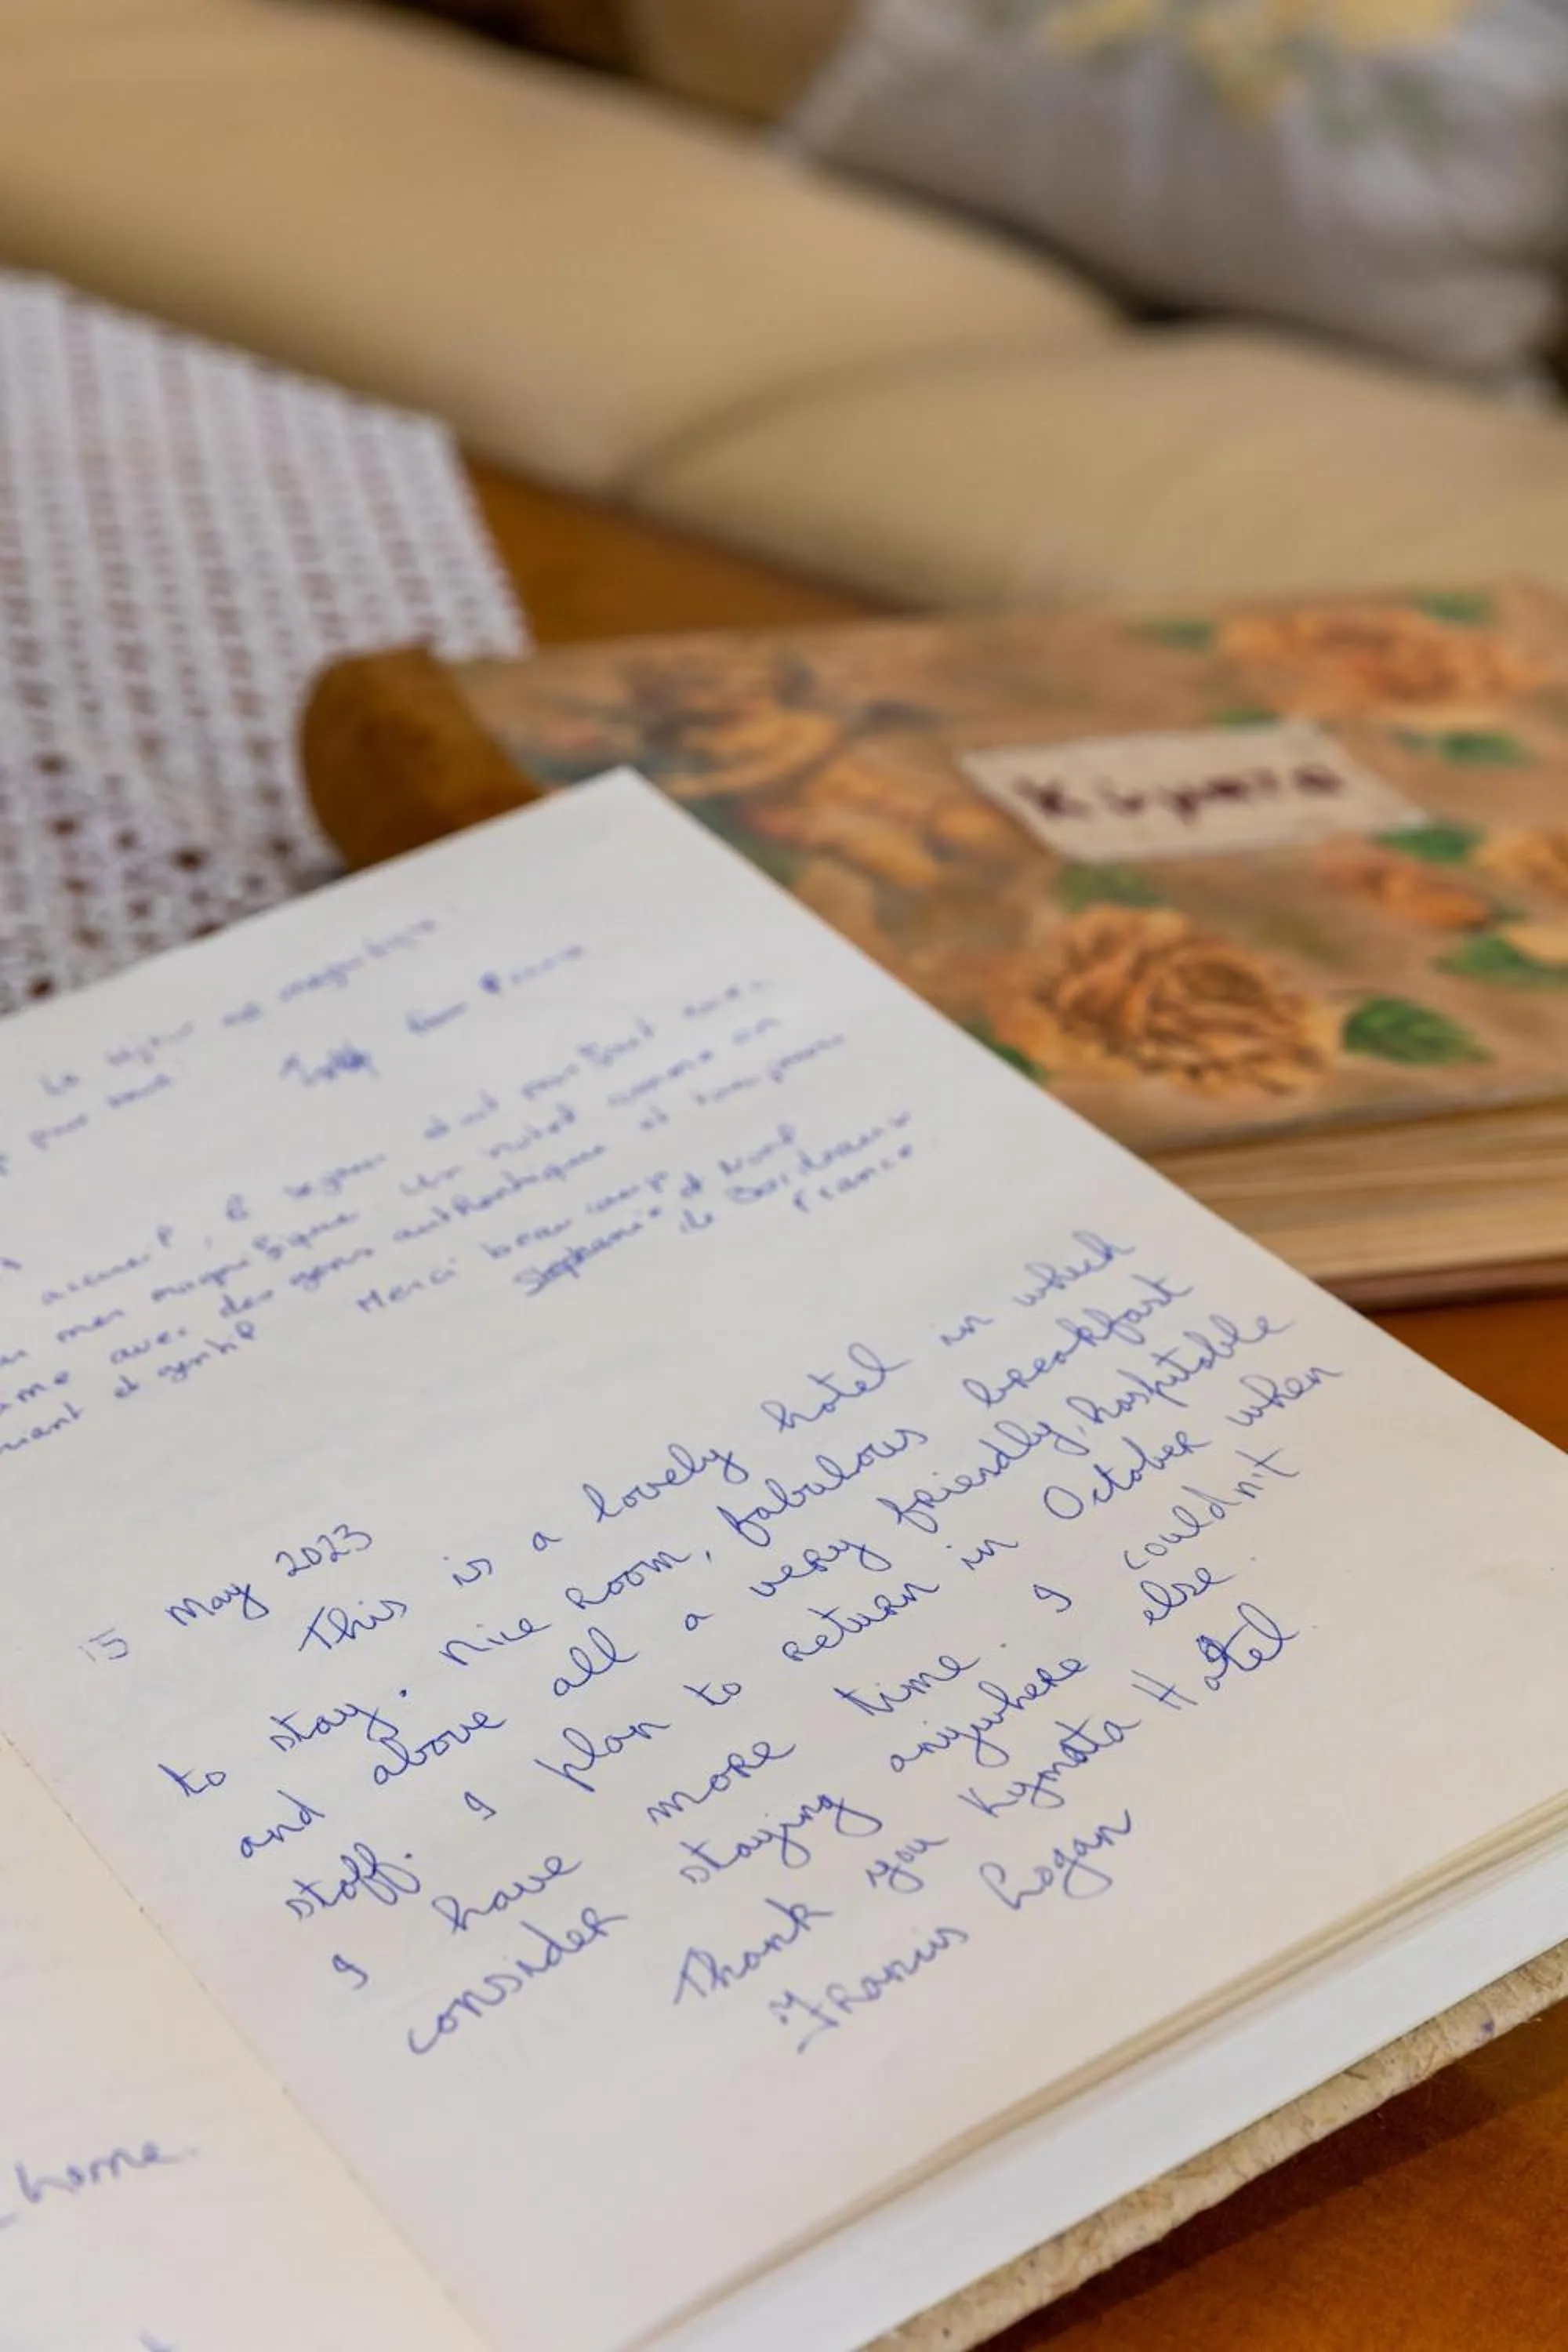 Le séjour est magnifique
pour tous
accueil, le séjour était parfait avec
mer magnifique. Un hotel comme on
aime avec des gens authentiques et toujours
riant et gentil Merci beaucoup et Noël
Stephanie de Bordeaux
France
15 May 2023
This is a lovely hotel in which
to stay. Nice room, fabulous breakfast
and above all a very friendly, hospitable
staff. I plan to return in October when
I have more time. I couldn't
consider staying anywhere else.
Thank you Kymata Hotel
Francis Logan
home.
Κύματα